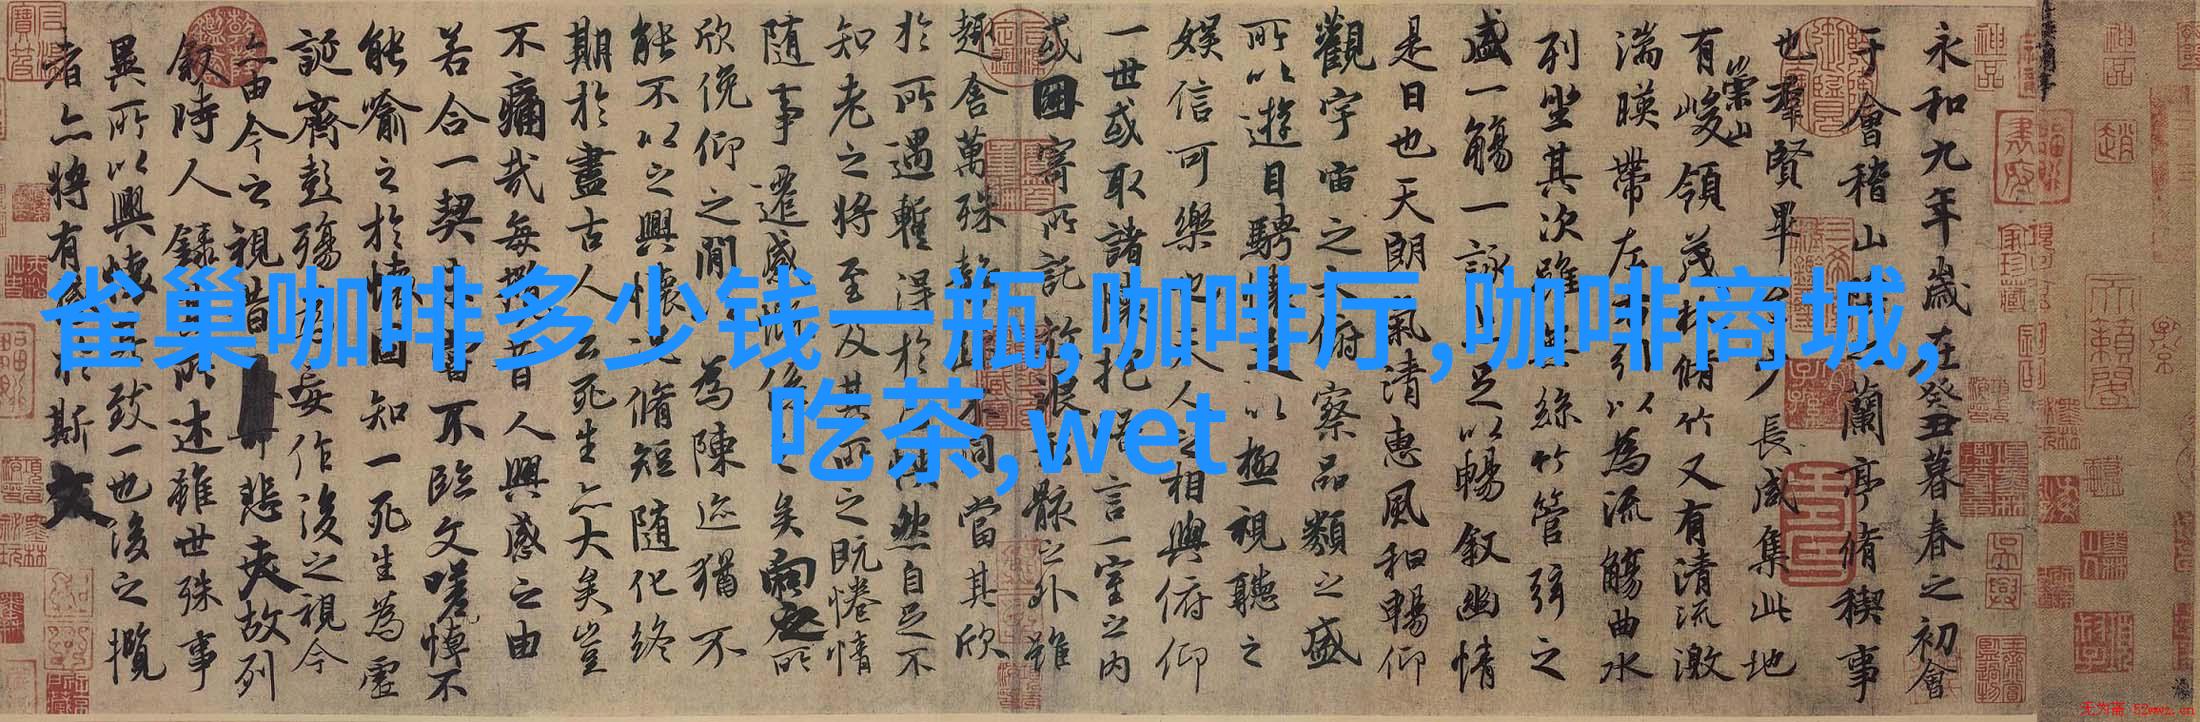 雀巢咖啡多少钱一瓶,咖啡厅,咖啡商城,
吃茶,wet
永和九年歲在癸丑暮春之初會
于會稽山蘭亭脩稧事
也羣賢畢少長咸集此地
有崇山峻領茂林脩竹又有清流激
湍暎帶左右引以為流觴曲水
列坐其次雖無絲竹管弦之
盛一觴一詠足以暢敘幽情
是日也天朗氣清惠風和暢仰
觀宇宙之大俯察品類之盛
所以遊目騁懷足以極視聽之
娛信可樂也夫人之相與俯仰
一世或取諸懷抱言一室之內
或因寄所託放浪骸之外雖
趣舍萬殊不同當其欣
於所遇暫得於然自足不
知老之將至及其所之既惓情
隨事遷感慨係之矣向之所
欣俛仰之閒為陳迹猶不
能不以之興懷況脩短隨化終
期於盡古人云死生亦大矣豈
不痛哉每攬昔人興感之由
若合一契不臨文嗟悼不
能喻之於懷固知一死生為虛
誕齊彭殤為妄作後之視今
亦由今之視昔悲夫故列
敘時人錄所述雖世殊事
異所以興懷致一也後之攬
者亦將有於斯文
无为斋 52wwz.cn